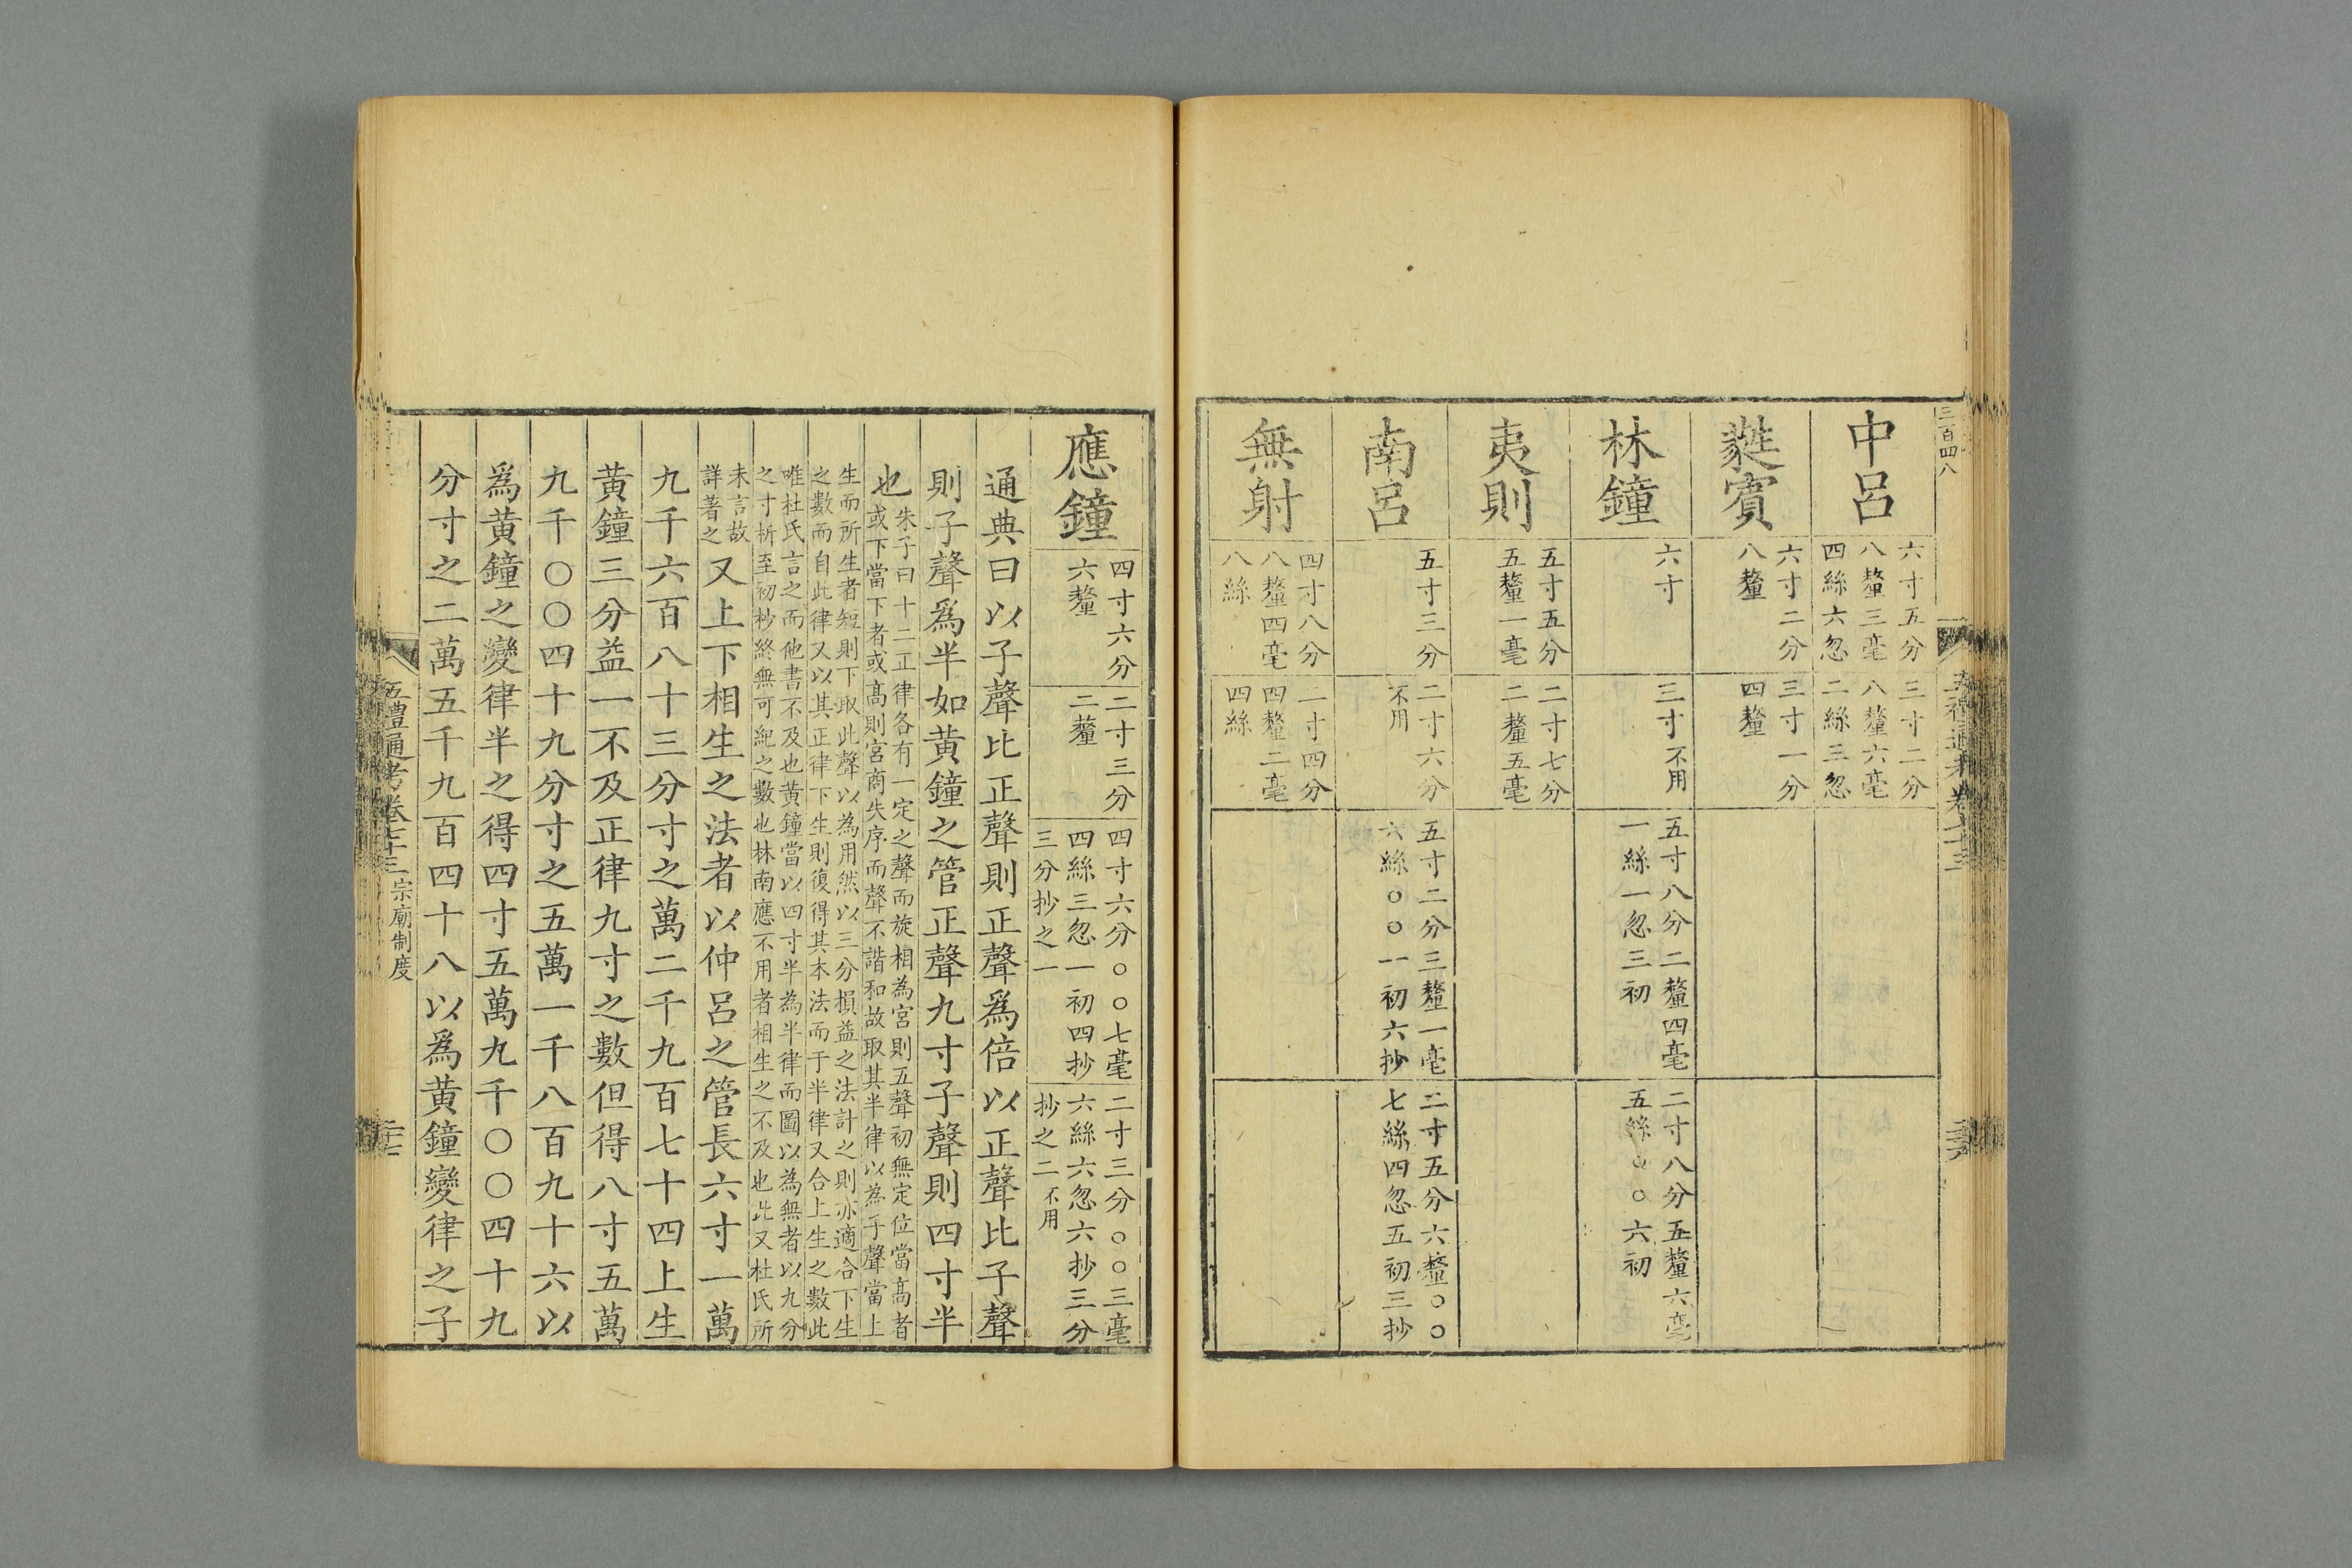 三百四八
中呂
六寸五分
八釐三毫
四絲六忽
三寸二分
八釐六毫
二絲三忽
蕤賓
六寸二分
八釐
三寸一分
四釐
林鐘
六寸
三寸不用
五寸八分二釐四毫
一絲一忽三初
二寸八分五釐六毫
五絲〇〇六初
夷則
五寸五分
五釐一毫
二寸七分
二釐五毫
南呂
五寸三分
二寸六分
不用
五寸二分三釐一毫
六絲〇〇一初六抄
二寸五分六釐〇〇
七絲四忽五初三抄
無射
四寸八分
八釐四毫
八絲
二寸四分
四釐二毫
四絲
應鐘
四寸六分
六釐
二寸三分
二釐
四寸六分〇〇七毫
四絲三忽一初四抄
三分抄之一
二寸三分〇〇三毫
六絲六忽六抄三分
抄之二不用
通典曰以子聲比正聲則正聲爲倍以正聲比子聲
則子聲爲半如黃鐘之管正聲九寸子聲則四寸半
也
朱子曰十二正律各有一定之聲而旋相為宮則五聲初無定位當高者
或下當下者或高則宮商失序而聲不諧和故取其半律以為子聲當上
生而所生者短則下取此聲以為用然以三分損益之法計之則亦適合下生
之數而自此律又以其正律下生則復得其本法而于半律又合上生之數此
唯杜氏言之而他書不及也黃鐘當以四寸半為半律而圖以為無者以九分
之寸析至初杪終無可紀之數也林南應不用者相生之不及也此又杜氏所
未言故
詳著之
又上下相生之法者以仲呂之管長六寸一萬
九千六百八十三分寸之萬二千九百七十四上生
黃鐘三分益一不及正律九寸之數但得八寸五萬
九千〇〇四十九分寸之五萬一千八百九十六以
爲黃鐘之變律半之得四寸五萬九千〇〇四十九
分寸之二萬五千九百四十八以爲黃鐘變律之子
五禮通考卷七十三
宗廟制度